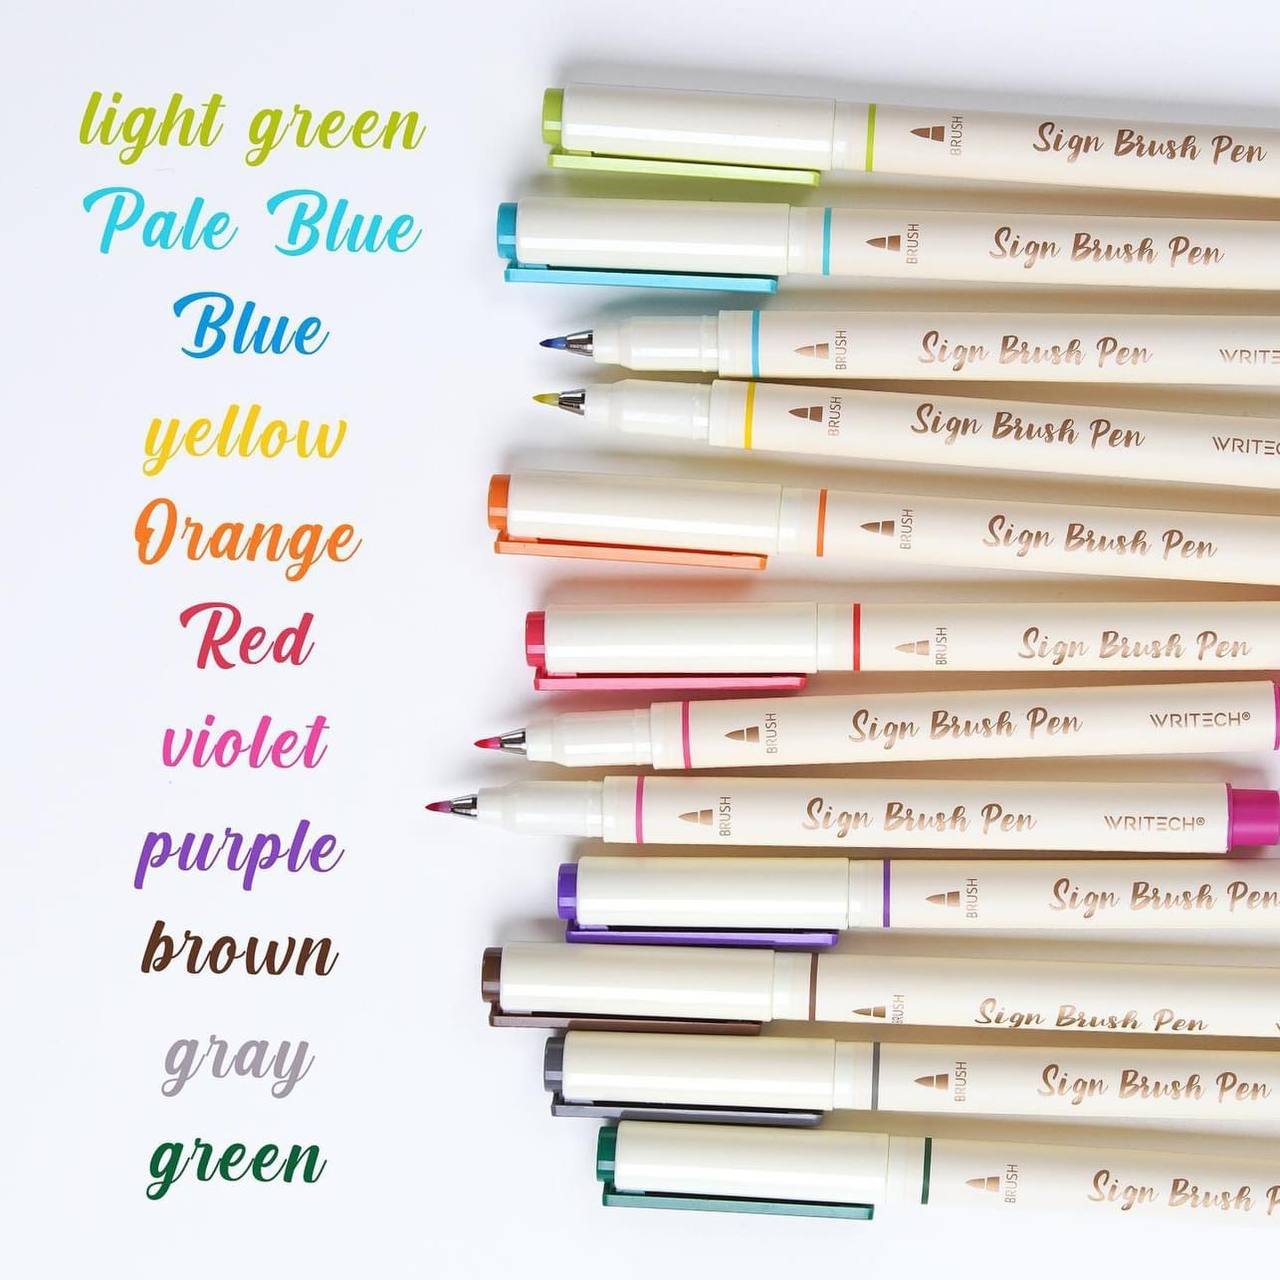 light green
Pale Blue
Blue
yellow
Orange
Red
violet
purple
brown
gray
green
BRUSH Sign Brush Pen
BRUSH Sign Brush Pen
BRUSH Sign Brush Pen
BRUSH Sign Brush Pen WRITECH
BRUSH Sign Brush Pen
BRUSH Sign Brush Pen
BRUSH Sign Brush Pen WRITECH®
BRUSH Sign Brush Pen WRITECH®
BRUSH Sign Brush Pen
BRUSH Sign Brush Pen
BRUSH Sign Brush Pen
BRUSH Sign Brush